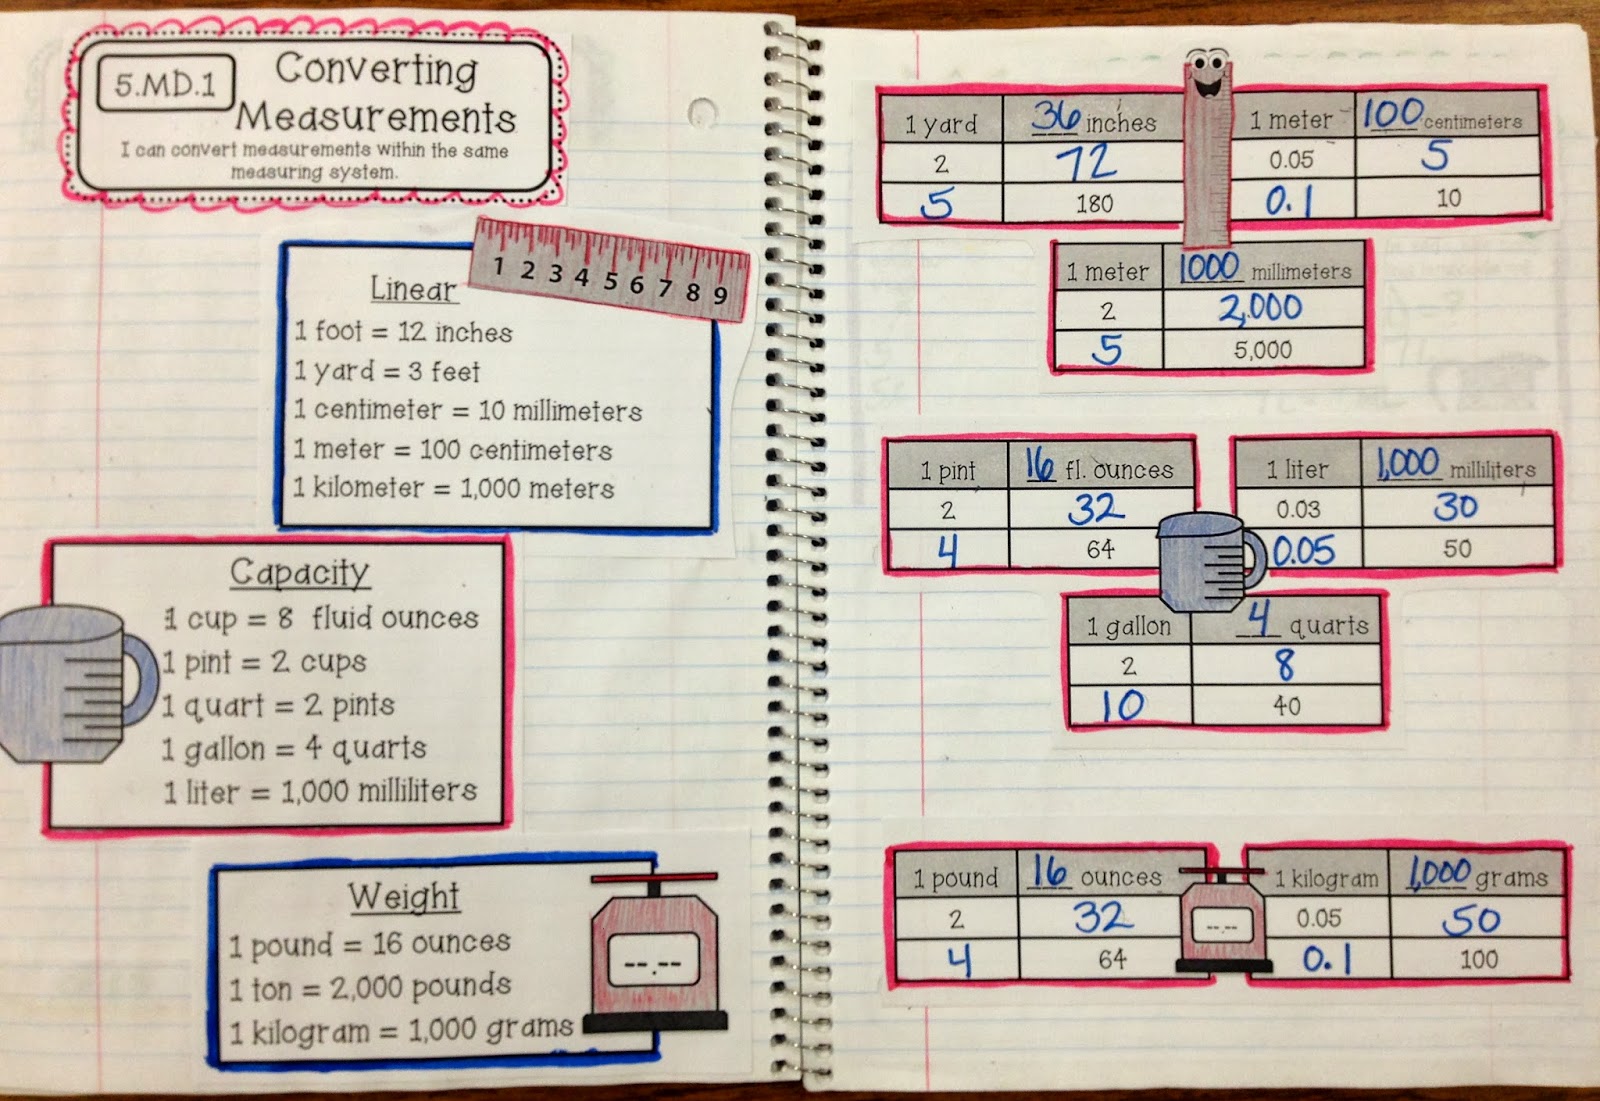 5.MD.1
Converting
Measurements
I can convert measurements within the same
measuring system.
1 2 3 4 5 6 7 8 9
Linear
1 foot = 12 inches
1 yard = 3 feet
1 centimeter = 10 millimeters
1 meter = 100 centimeters
1 kilometer = 1,000 meters
Capacity
1 cup = 8 fluid ounces
1 pint = 2 cups
1 quart = 2 pints
1 gallon = 4 quarts
1 liter = 1,000 milliliters
Weight
1 pound = 16 ounces
1 ton = 2,000 pounds
1 kilogram = 1,000 grams
--.--
1 yard 36 inches
2 72
5 180
1 meter 100 centimeters
0.05 5
0.1 10
1 meter 1000 millimeters
2 2,000
5 5,000
1 pint 16 fl. ounces
2 32
4 64
1 liter 1,000 milliliters
0.03 30
0.05 50
1 gallon 4 quarts
2 8
10 40
1 pound 16 ounces
2 32
4 64
--.--
1 kilogram 1,000 grams
0.05 50
0.1 100